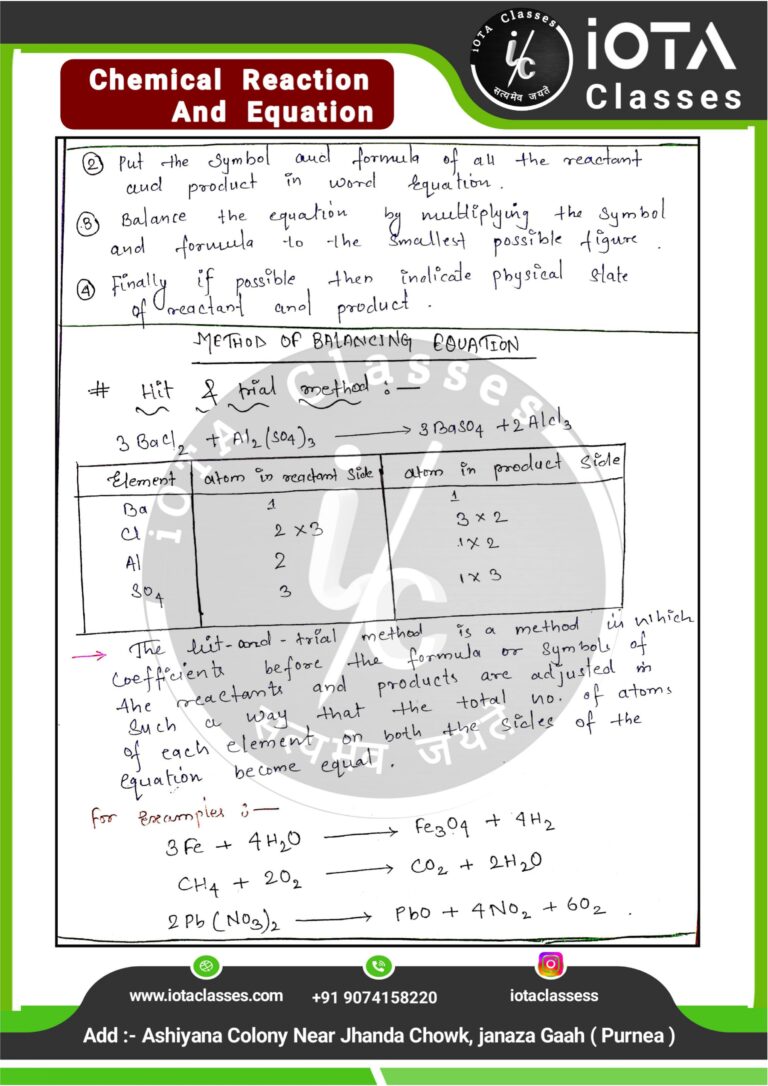 iOTA Classes
i/c
सत्यमेव जयते
iOTA
Classes
Chemical Reaction
And Equation
② Put the symbol and formula of all the reactant
and product in word equation.
③ Balance the equation by multiplying the symbol
and formula to the smallest possible figure.
④ Finally if possible then indicate physical state
of reactant and product.
METHOD OF BALANCING EQUATION
# Hit & trial method :—
3 BaCl₂ + Al₂(SO₄)₃ ⟶ 3 BaSO₄ + 2 AlCl₃
Element atom in reactant side atom in product side
Ba 1 1
Cl 2 × 3 3 × 2
Al 2 1 × 2
SO₄ 3 1 × 3
iOTA Classes
i/c
सत्यमेव जयते
→ The hit-and-trial method is a method in which
coefficients before the formula or symbols of
the reactants and products are adjusted in
such a way that the total no. of atoms
of each element on both the sides of the
equation become equal.
For Examples :—
3Fe + 4H₂O ⟶ Fe₃O₄ + 4H₂
CH₄ + 2O₂ ⟶ CO₂ + 2H₂O
2Pb(NO₃)₂ ⟶ PbO + 4NO₂ + 6O₂ .
www.iotaclasses.com +91 9074158220 iotaclassess
Add :- Ashiyana Colony Near Jhanda Chowk, janaza Gaah ( Purnea )